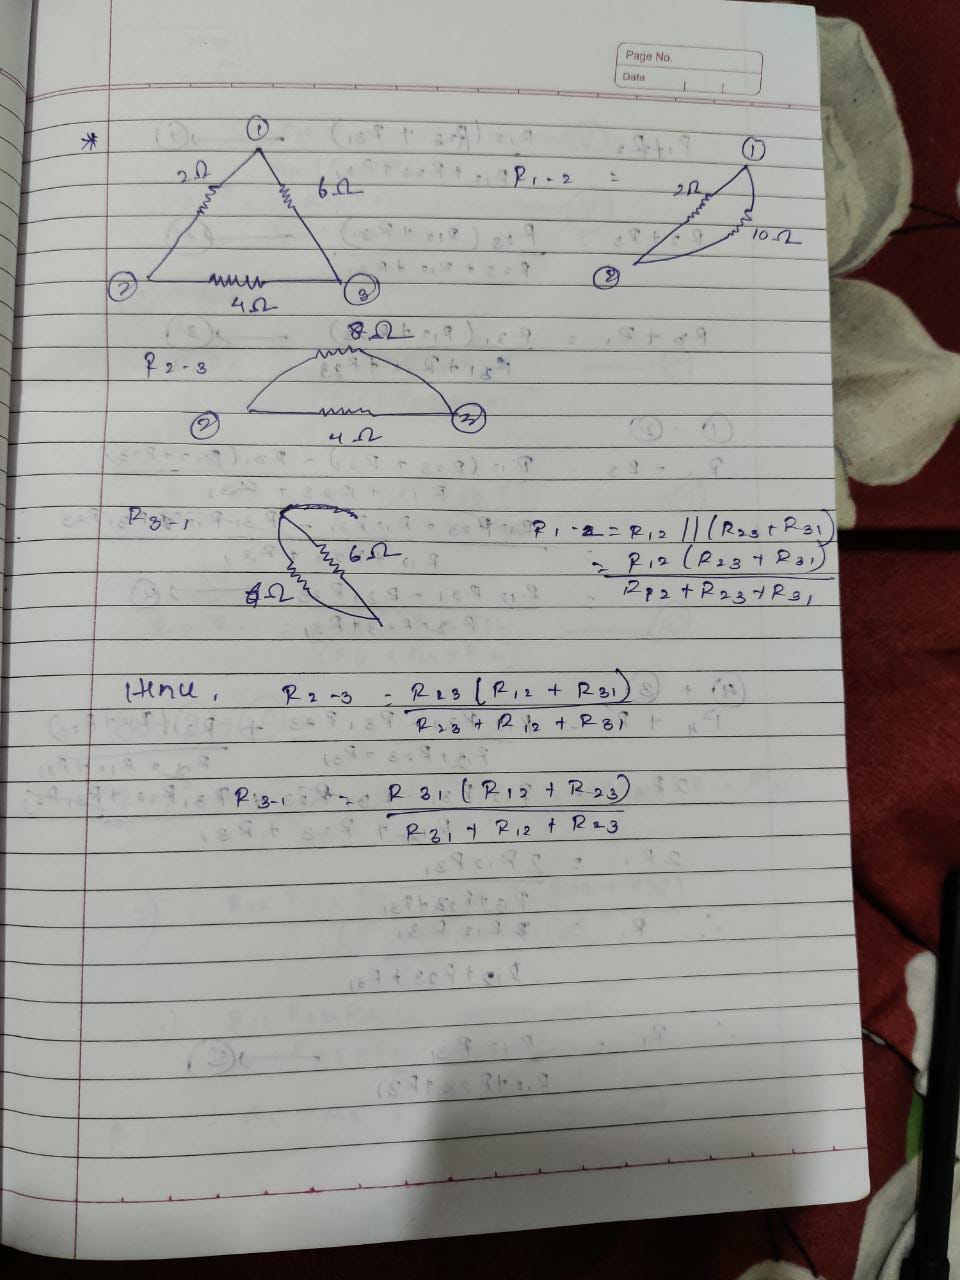 Page No.
Date
*
①
2Ω
6Ω
②
4Ω
③
R1-2 =
①
2Ω
10Ω
②
R2-3
8Ω
②
4Ω
③
R3-1
6Ω
6Ω
R1-2 = R12 || (R23 + R31)
= R12 (R23 + R31)
R12 + R23 + R31
R2-3 = R23 (R12 + R31)
R23 + R12 + R31
R3-1 = R31 (R12 + R23)
R31 + R12 + R23